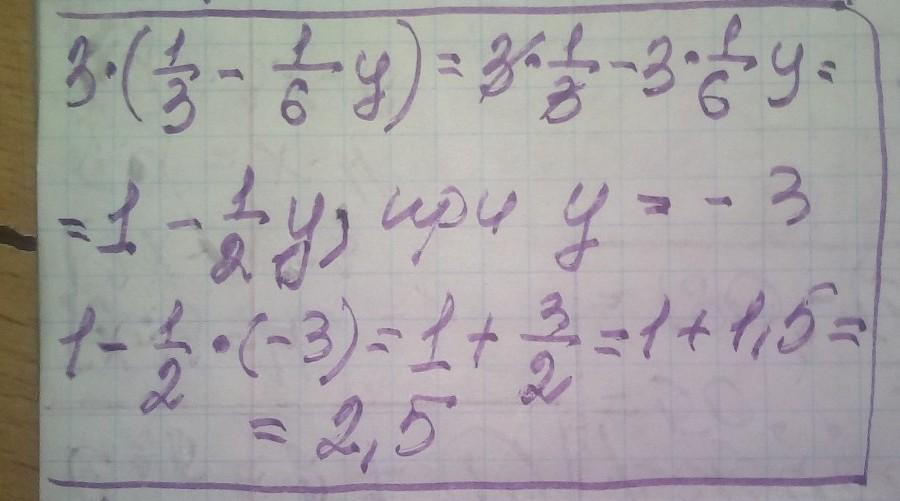 3·(1/3 - 1/6 y) = 3·1/3 - 3·1/6 y =
= 1 - 1/2 y, при y = - 3
1 - 1/2 · (-3) = 1 + 3/2 = 1 + 1,5 =
= 2,5